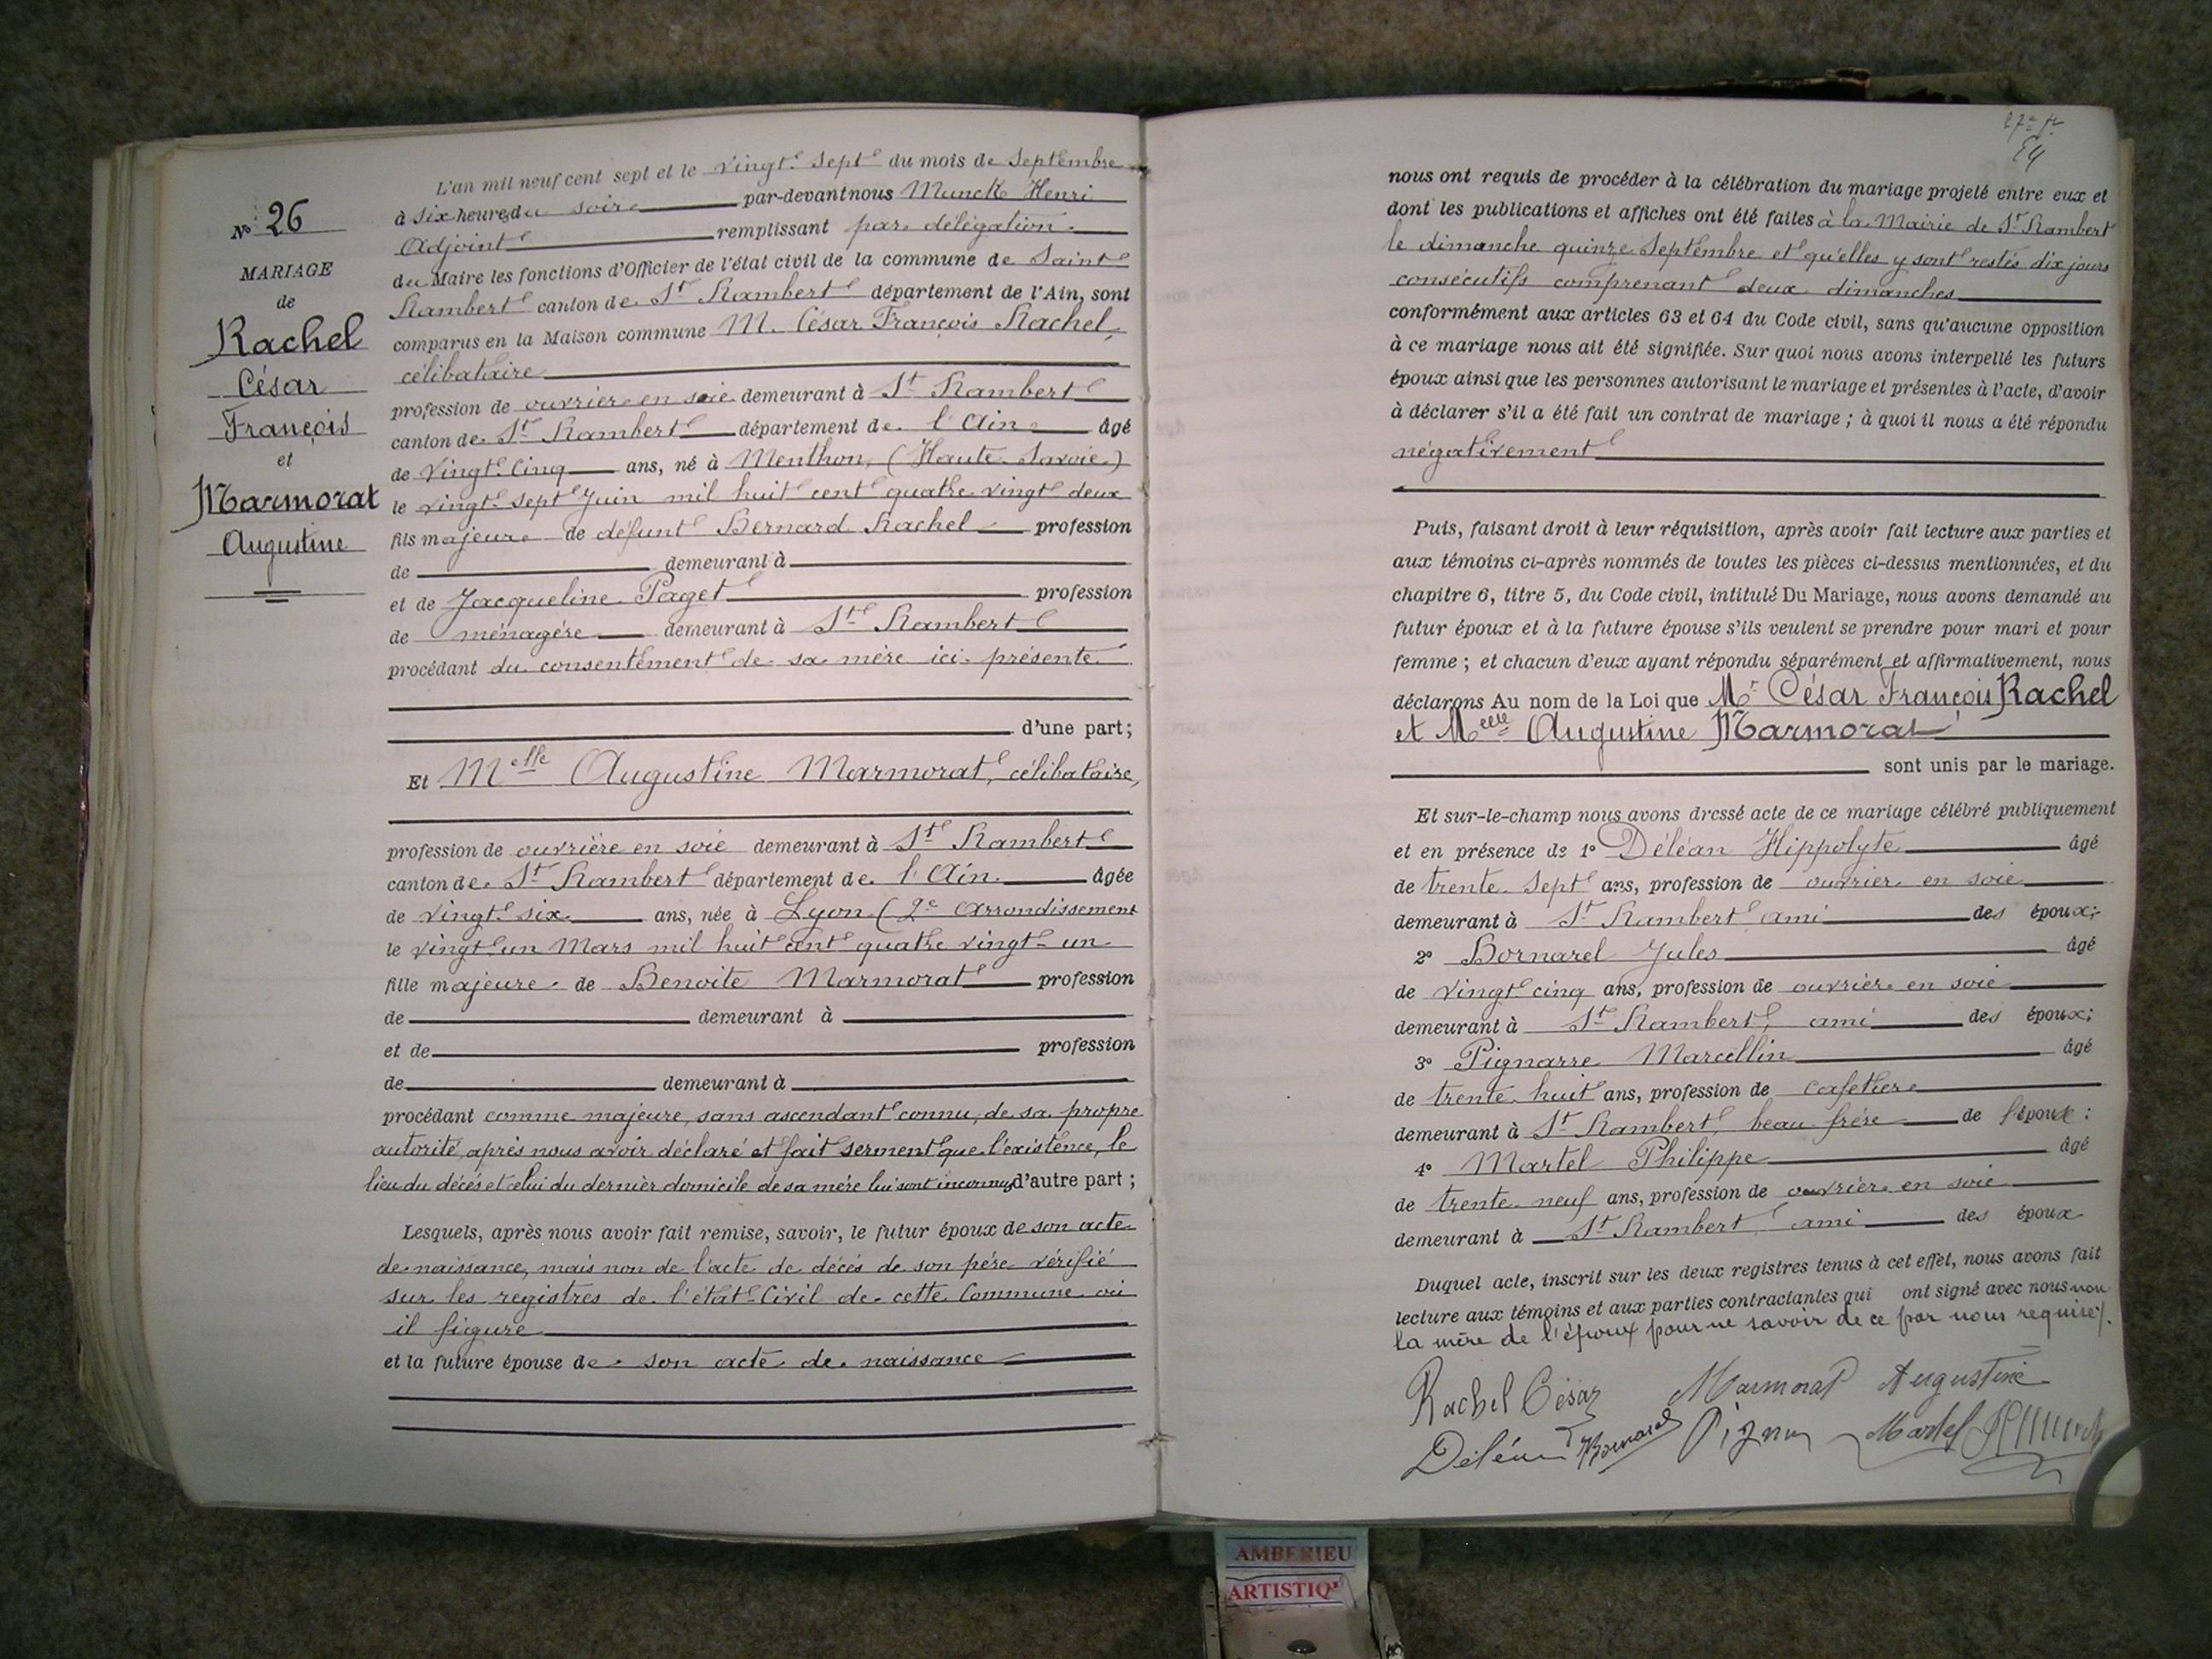 L'an mil neuf cent sept et le vingt sept du mois de Septembre
à six heures du soir par-devant nous Munck Henri
Adjoint remplissant par délégation
du Maire les fonctions d'Officier de l'état civil de la commune de Saint
Rambert canton de St Rambert département de l'Ain, sont
comparus en la Maison commune M. César François Rachel,
célibataire
profession de ouvrier en soie demeurant à St Rambert
canton de St Rambert département de l'Ain âgé
de vingt cinq ans, né à Menthon, (Haute Savoie)
le vingt sept Juin mil huit cent quatre vingt deux
fils majeur de défunt Bernard Rachel profession
de demeurant à
et de Jacqueline Paget profession
de ménagère demeurant à St Rambert
procédant du consentement de sa mère ici présente
d'une part;
Et Melle Augustine Marmorat, célibataire,
profession de ouvrière en soie demeurant à St Rambert
canton de St Rambert département de l'Ain âgée
de vingt six ans, née à Lyon (2e Arrondissement
le vingt un Mars mil huit cent quatre vingt un
fille majeure de Benoite Marmorat profession
de demeurant à
et de profession
de demeurant à
procédant comme majeure, sans ascendant connu, de sa propre
autorité, après nous avoir déclaré et fait serment que l'existence, le
lieu du décès et celui du dernier domicile de sa mère lui sont inconnus d'autre part;
Lesquels, après nous avoir fait remise, savoir, le futur époux de son acte
de naissance, mais non de l'acte de décès de son père vérifié
sur les registres de l'état Civil de cette Commune où
il figure
et la future épouse de son acte de naissance
No 26
MARIAGE
de
Rachel
César
François
et
Marmorat
Augustine
nous ont requis de procéder à la célébration du mariage projeté entre eux et
dont les publications et affiches ont été faites à la Mairie de St Rambert
le dimanche quinze Septembre et qu'elles y sont restés dix jours
consécutifs comprenant deux dimanches
conformément aux articles 63 et 64 du Code civil, sans qu'aucune opposition
à ce mariage nous ait été signifiée. Sur quoi nous avons interpellé les futurs
époux ainsi que les personnes autorisant le mariage et présentes à l'acte, d'avoir
à déclarer s'il a été fait un contrat de mariage; à quoi il nous a été répondu
négativement
Puis, faisant droit à leur réquisition, après avoir fait lecture aux parties et
aux témoins ci-après nommés de toutes les pièces ci-dessus mentionnées, et du
chapitre 6, titre 5, du Code civil, intitulé Du Mariage, nous avons demandé au
futur époux et à la future épouse s'ils veulent se prendre pour mari et pour
femme; et chacun d'eux ayant répondu séparément et affirmativement, nous
déclarons Au nom de la Loi que Mr César François Rachel
et Melle Augustine Marmorat
sont unis par le mariage.
Et sur-le-champ nous avons dressé acte de ce mariage célébré publiquement
et en présence de 1° Déléan Hippolyte âgé
de trente sept ans, profession de ouvrier en soie
demeurant à St Rambert ami des époux;
2° Bornarel Jules âgé
de vingt cinq ans, profession de ouvrier en soie
demeurant à St Rambert, ami des époux;
3° Pignarre Marcellin âgé
de trente huit ans, profession de cafetier
demeurant à St Rambert, beau frère de l'époux:
4° Martel Philippe âgé
de trente neuf ans, profession de ouvrier en soie
demeurant à St Rambert ami des époux
Duquel acte, inscrit sur les deux registres tenus à cet effet, nous avons fait
lecture aux témoins et aux parties contractantes qui ont signé avec nous non
la mère de l'époux pour ne savoir de ce par nous requise.
Rachel César Marmorat Augustine
Déléan Bornarel Martel
AMBERIEU
ARTISTIQ